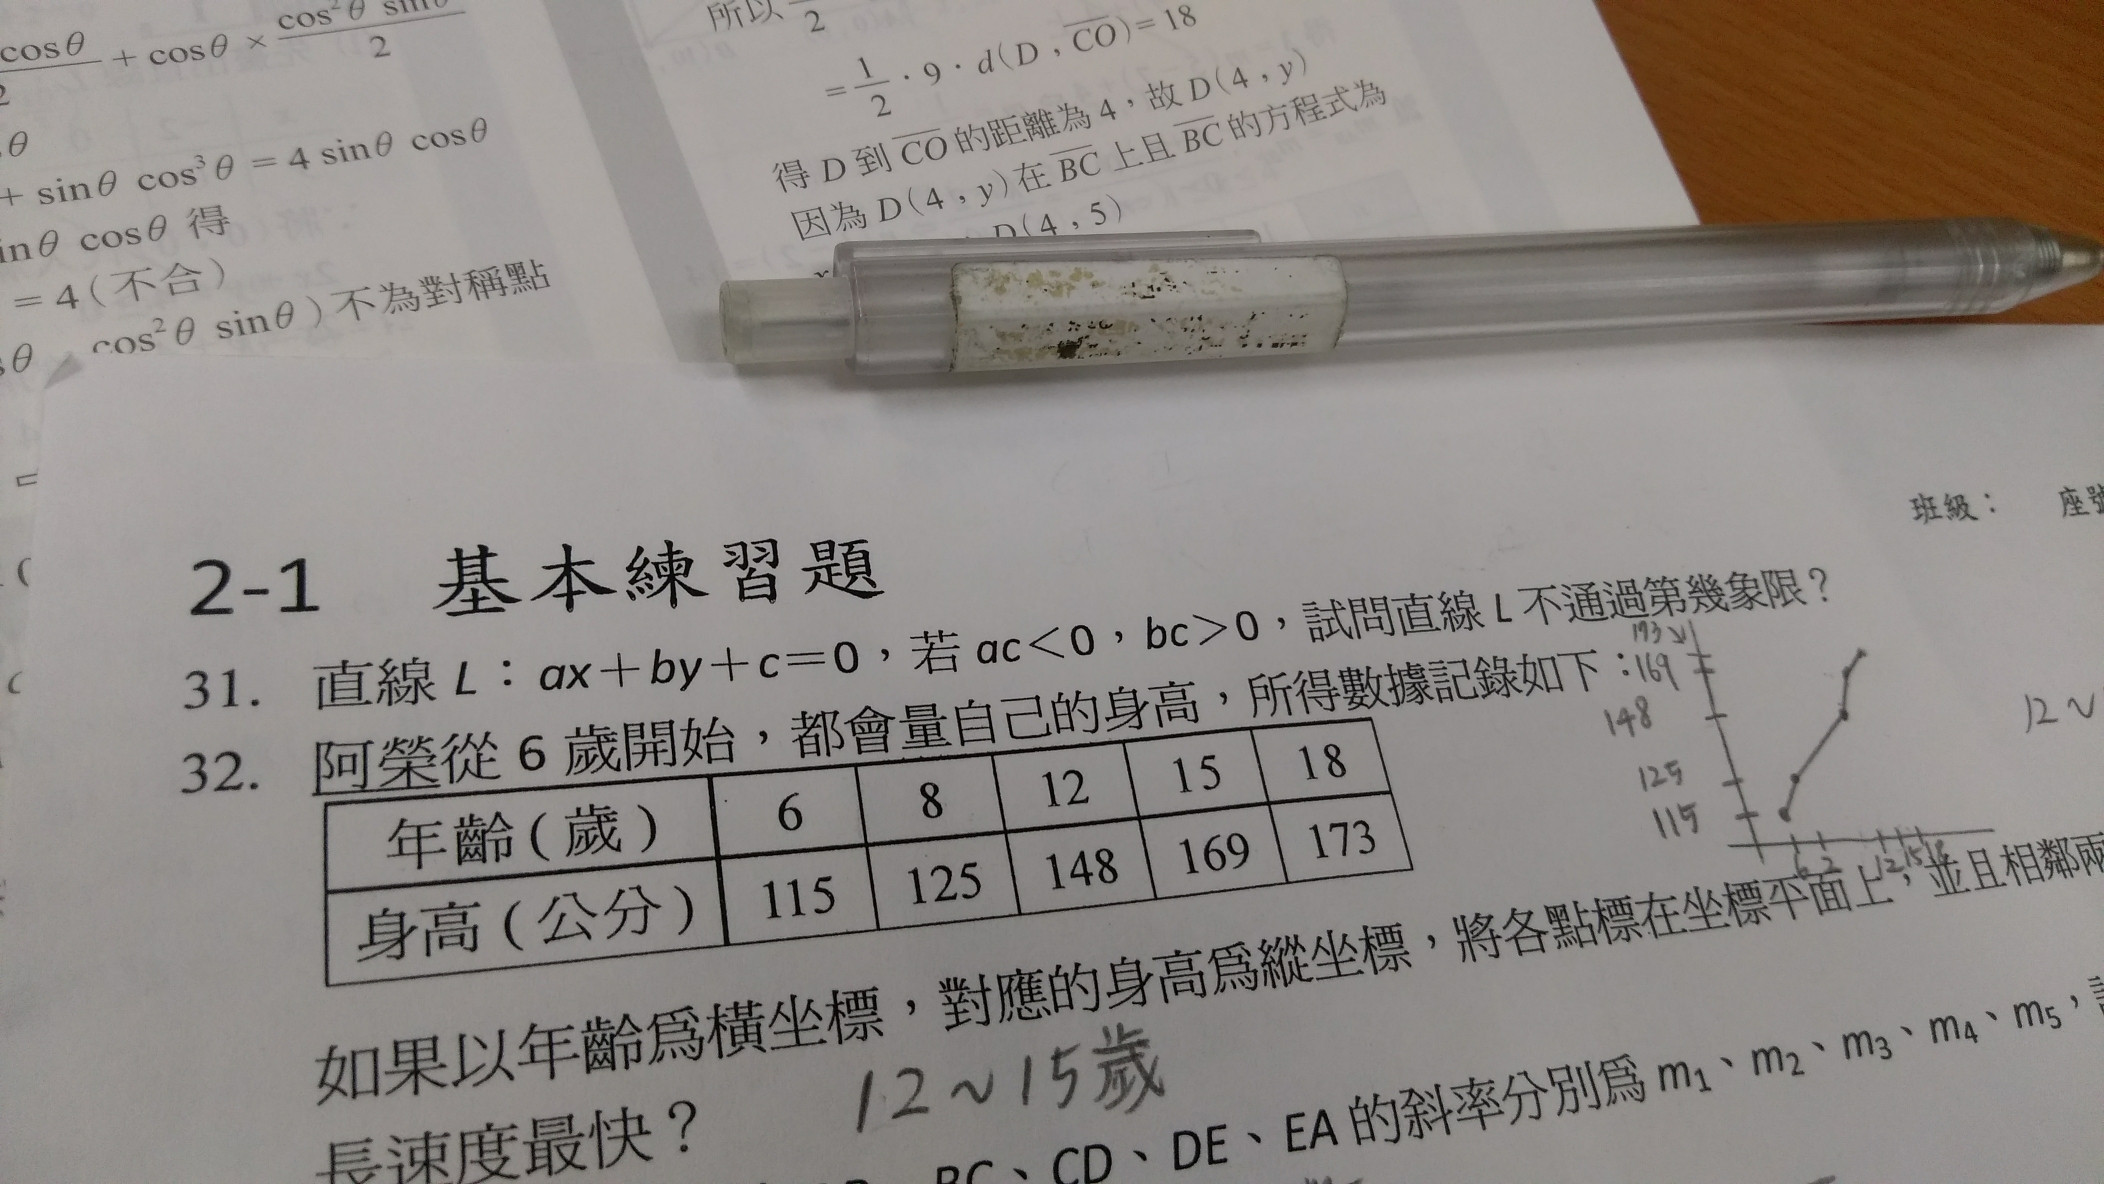 cosθ/2 + cosθ × cos²θ sinθ/2
+ sinθ cos³θ = 4 sinθ cosθ
sinθ cosθ 得
= 4(不合)
cos²θ sinθ)不為對稱點
所以
= 1/2 · 9 · d(D, CO) = 18
得 D 到 CO 的距離為 4,故 D(4, y)
因為 D(4, y)在 BC 上且 BC 的方程式為
D(4, 5)
班級: 座號
2-1 基本練習題
31. 直線 L:ax+by+c=0,若 ac<0,bc>0,試問直線 L 不通過第幾象限?
32. 阿榮從 6 歲開始,都會量自己的身高,所得數據記錄如下:
年齡(歲) 6 8 12 15 18
身高(公分) 115 125 148 169 173
173
169
148
125
115
6 2 12 15 18
12~
如果以年齡爲橫坐標,對應的身高爲縱坐標,將各點標在坐標平面上,並且相鄰兩
長速度最快? 12~15歲
BC、CD、DE、EA 的斜率分別爲 m₁、m₂、m₃、m₄、m₅,